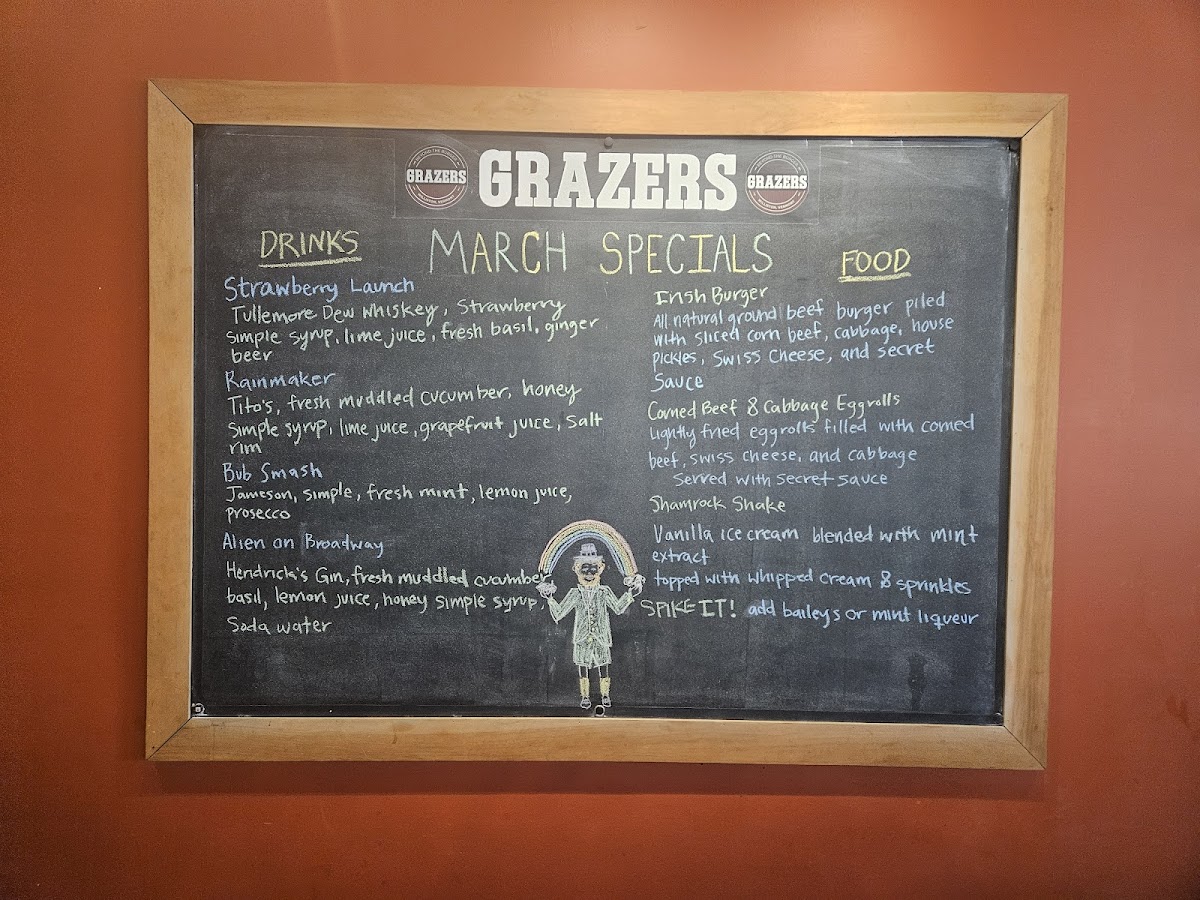 BEYOND THE BURGER
GRAZERS
WILLISTON, VERMONT
GRAZERS
BEYOND THE BURGER
GRAZERS
WILLISTON, VERMONT
MARCH SPECIALS
DRINKS
Strawberry Launch
Tullemore Dew Whiskey, Strawberry
simple syrup, lime juice, fresh basil, ginger
beer
Rainmaker
Tito's, fresh muddled cucumber, honey
simple syrup, lime juice, grapefruit juice, salt
rim
Bub Smash
Jameson, simple, fresh mint, lemon juice,
prosecco
Alien on Broadway
Hendrick's Gin, fresh muddled cucumber
basil, lemon juice, honey simple syrup,
Soda water
FOOD
Irish Burger
All natural ground beef burger piled
with sliced corn beef, cabbage, house
pickles, swiss cheese, and secret
Sauce
Corned Beef & Cabbage Eggrolls
Lightly fried eggrolls filled with corned
beef, swiss cheese, and cabbage
Served with secret sauce
Shamrock Shake
Vanilla ice cream blended with mint
extract
topped with whipped cream & sprinkles
SPIKE IT! add baileys or mint liqueur